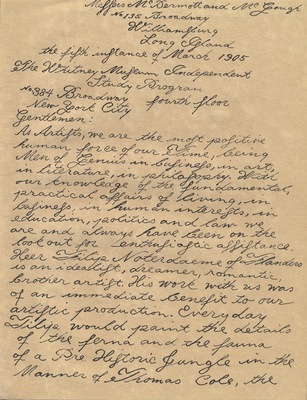 Messrs McDermott and McGough
No 135 Broadway
Williamsburg
Long Island
the fifth instance of March 1905
The Whitney Museum Independent
Study Program
No 384 Broadway fourth floor
New York City
Gentlemen:
As Artists, we are the most positive
human force of our Time, being
Men of Genius in business, in art,
in literature, in philosophy. With
our knowledge of the fundamental,
practical affairs of living, in
business, in human interests, in
education, politics and law we
are and always have been on the
look out for enthusiastic assistance.
Heer Filip Noterdaeme of Flanders
is an idealist, dreamer, romantic,
brother artist. His work with us was
of an immediate benefit to our
artistic production. Everyday
Filip, would paint the details
of the ferna and the fauna
of a Pre Historic Jungle in the
Manner of Thomas Cole, the